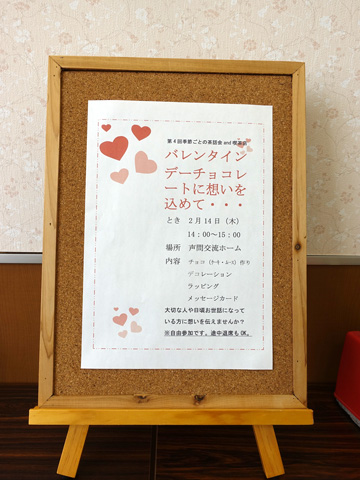 第4回季節ごとの茶話会and喫茶店
バレンタイン
デーチョコレ
ートに想いを
込めて・・・
とき 2月14日（木）
14：00～15：00
場所 声問交流ホーム
内容 チョコ（ケーキ・ムース）作り
デコレーション
ラッピング
メッセージカード
大切な人や日頃お世話になって
いる方に想いを伝えませんか？
※自由参加です。途中退席もOK。